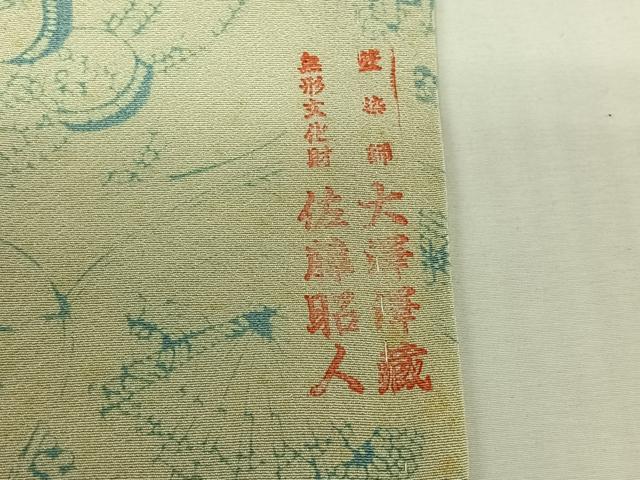 整染師 大澤澤藏
無形文化財 佐藤昭人